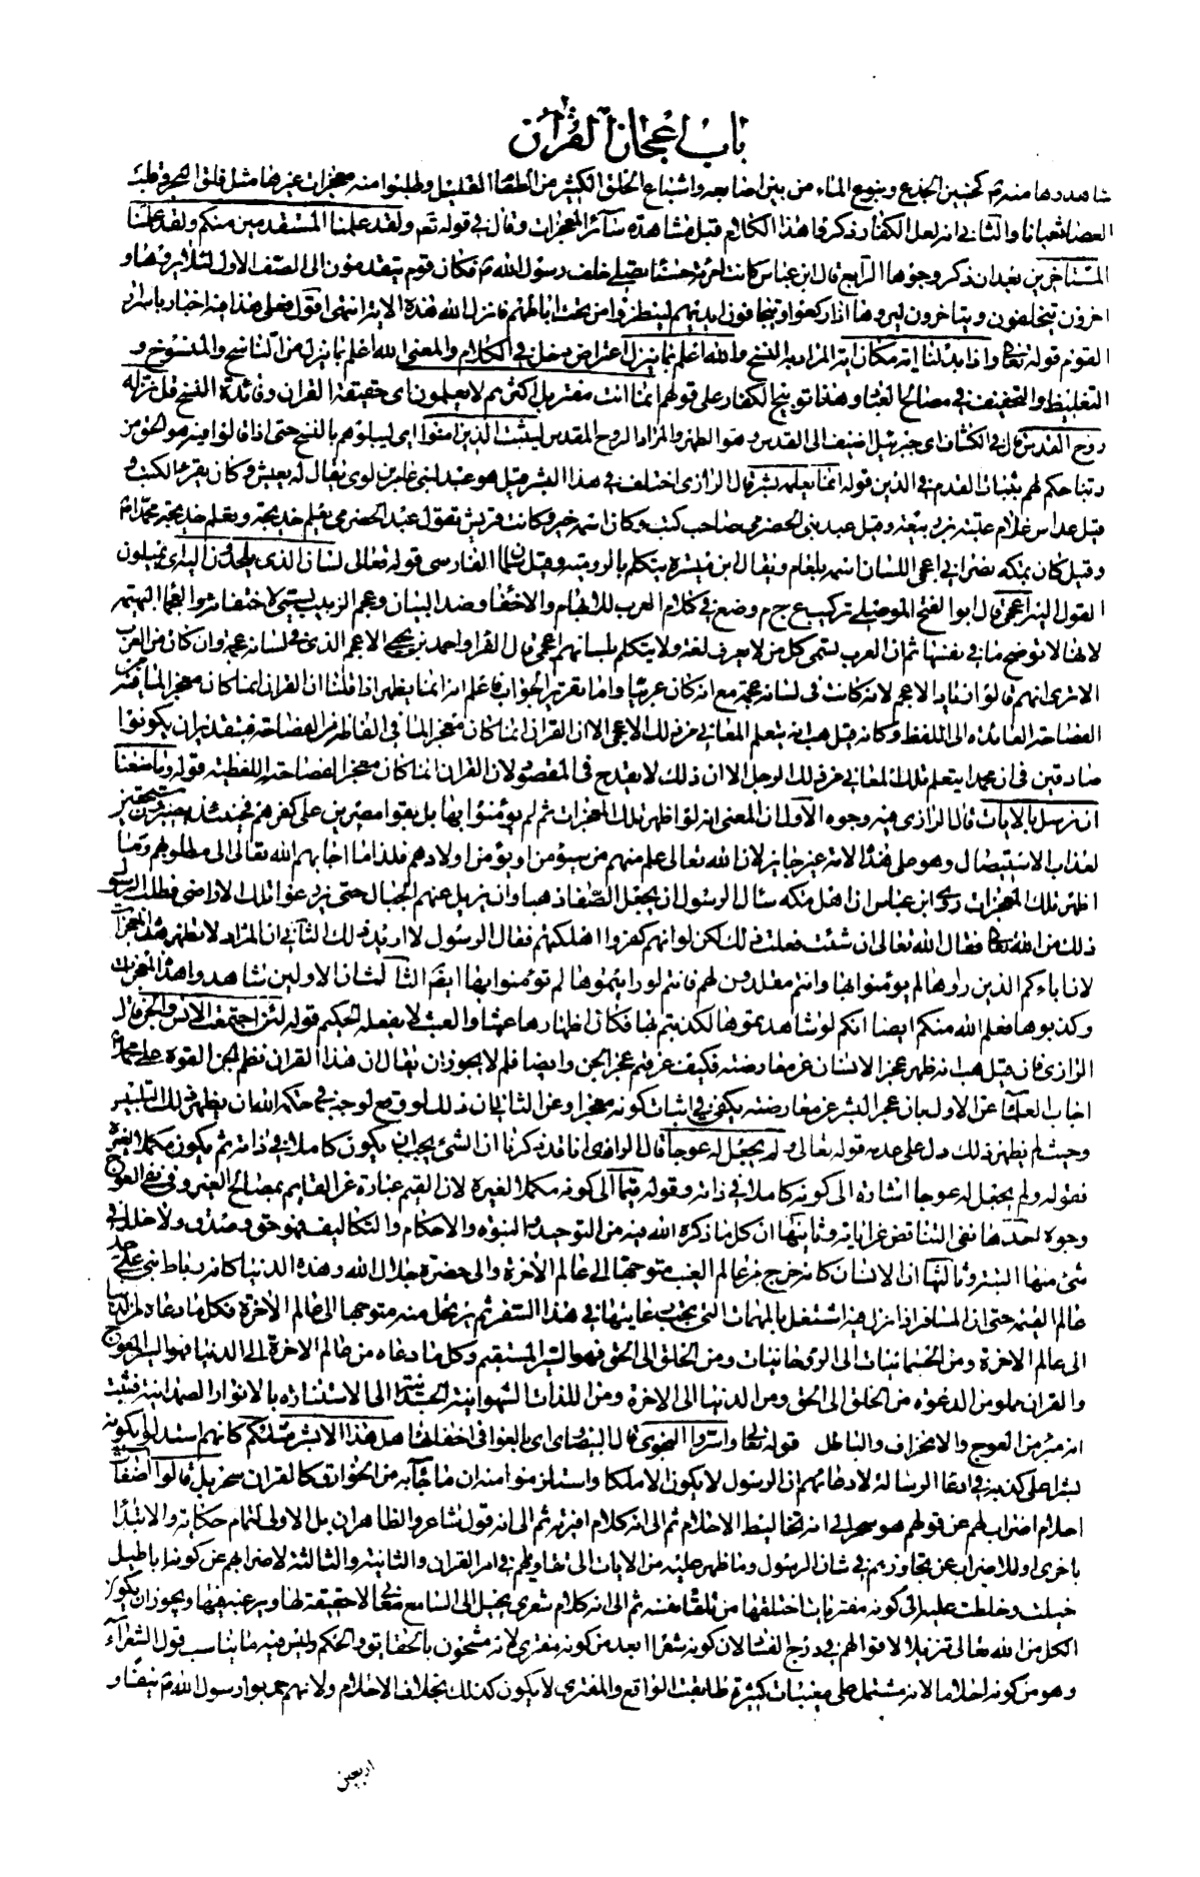 باب اعجاز القرآن
شاهدوها منه ص كحنين الجذع وينبوع الماء من بين اصابعه واشباع الخلق الكثير من الطعام القليل وطلبوا منه معجزات غيرها مثل فلق البحر وقلب
العصا ثعبانا والثاني انه لعل الكفار ذكروا هذا الكلام قبل مشاهدة سائر المعجزات وقال في قوله تعم ولقد علمنا المستقدمين منكم ولقد علمنا
المستأخرين بعد ان ذكر وجوها الرابع قال ابن عباس كانت امرئة حسناء تصلي خلف رسول الله ص فكان قوم يتقدمون الى الصف الاول لئلا يروها و
اخرون يتخلفون ويتأخرون ليروها اذا ركعوا ويتجافون ايديهم لينظروا من تحت اباطهم فانزل الله هذه الاية انتهى اقول فعلى هذا فيه اخبار باسرار
القوم قوله تعالى واذا بدلنا اية مكان اية المراد به النسخ والله اعلم بما ينزل اعتراض دخل في الكلام والمعنى الله اعلم بما ينزل من الناسخ والمنسوخ و
التغليظ والتخفيف في مصالح العباد وهذا توبيخ الكفار على قولهم انما انت مفتر بل اكثرهم لا يعلمون اى حقيقة القران وفائدة النسخ قل نزله
روح القدس قال في الكشاف اى جبرئيل اضيف الى القدس وهو الطهر والمراد الروح المقدس ليثبت الذين امنوا اى ليبلوهم بالنسخ حتى اذا قالوا فيه هو الحق من
ربنا حكم لهم بثبات القدم في الدين قوله انما يعلمه بشر قال الرازى اختلف في هذا البشر قيل هو عبد لبني عامر بن لوى يقال له يعيش وكان يقرء الكتب و
قيل عداس غلام عتبة بن ربيعة وقيل عبد بني الحضرمي صاحب كتب وكان اسمه خير وكانت قريش تقول عبد الحضرمي يعلم خديجة ويعلم خديجة محمدا ص
وقيل كان بمكة نصراني اعجمي اللسان اسمه بلعام ويقال ابن ميسرة يتكلم بالرومية وقيل سلمان الفارسى قوله تعالى لسان الذى يلحدون اليه اى يميلون
القول اليه اعجمي قال ابو الفتح الموصلي تركيب ع ج م وضع في كلام العرب للابهام والاخفاء وضد البيان وعجم الزبيب يسمى لاختفائه والعجماء البهيمة
لانها لا توضح ما في نفسها ثم ان العرب تسمى كل من لا يعرف لغتهم ولا يتكلم بلسانهم اعجمي قال الفرا واحمد بن يحيى الاعجم الذى في لسانه عجمة وان كان من العرب
الا ترى انهم قالوا زياد الاعجم لانه كانت في لسانه عجمة مع انه كان عربيا واما تقرير الجواب فاعلم انه انما يظهر اذا قلنا ان القران انما كان معجزا لما فيه من
الفصاحة العائدة الى اللفظ وكانه قيل هب انه يتعلم المعاني من ذلك الاعجمي الا ان القران انما كان معجزا لما في الفاظه من الفصاحة فبتقدير ان يكونوا
صادقين في ان محمدا يتعلم تلك المعاني من ذلك الرجل الا ان ذلك لا يقدح في المقصود لان القران انما كان معجزا لفصاحته اللفظية قوله وما منعنا
ان نرسل بالايات قال الرازى فيه وجوه الاول ان المعنى انه لو اظهر تلك المعجزات ثم لم يؤمنوا بها بل بقوا مصرين على كفرهم فحينئذ يصيرون مستحقين
لعذاب الاستيصال وهو على هذه الامة غير جايز لان الله تعالى علم منهم من سيؤمن او يؤمن اولادهم فلذا ما اجابهم الله تعالى الى مطلوبهم وما
اظهر تلك المعجزات روى ابن عباس ان اهل مكة سئلوا الرسول ان يجعل الصفا ذهبا وان يزيل عنهم الجبال حتى يزرعوا تلك الاراضى فطلب الرسول
ذلك من الله تعالى فقال الله تعالى ان شئت فعلت ذلك لكن لو انهم كفروا اهلكتهم فقال الرسول لا اريد ذلك الثاني ان المراد لا نظهر هذه المعجزات
لان اباءكم الذين راوها لم يؤمنوا بها وانتم مقلدون لهم فانتم لو رايتموها لم تؤمنوا بها ايضا الثالث ان الاولين شاهدوا هذه المعجزات
وكذبوها فعلم الله منكم ايضا انكم لو شاهدتموها لكذبتم بها فكان اظهارها عبثا والعبث لا يفعله الحكيم قوله لئن اجتمعت الانس والجن قال
الرازى فان قيل هب انه ظهر عجز الانسان عن معارضته فكيف عرفتم عجز الجن وايضا فلم لا يجوز ان يقال ان هذا القران نظم الجن القوه على محمد ص
اجاب العلماء عن الاول بان عجز البشر عن معارضته يكفي في اثبات كونه معجزا وعن الثاني بان ذلك لو وقع لوجب في حكمة الله ان يظهر ذلك التلبيس
وحيث لم يظهر ذلك دل على عدمه قوله تعالى ولم يجعل له عوجا قال الرازى انا قد ذكرنا ان الشئ يجب ان يكون كاملا في ذاته ثم يكون مكملا لغيره
فقوله ولم يجعل له عوجا اشارة الى كونه كاملا في ذاته وقوله قيما الى كونه مكملا لغيره لان القيم عبارة عن القايم بمصالح الغير وفي نفي العوج
وجوه احدها نفي التناقض عن اياته وثانيها ان كل ما ذكره الله فيه من التوحيد والنبوه والاحكام والتكاليف فهو حق وصدق ولا خلل في
شئ منها البتة وثالثها ان الانسان كانه خرج من عالم الغيب متوجها الى عالم الاخرة والى حضرة جلال الله وهذه الدنيا كانه رباط بني على حد
عالم القيمة حتى ان المسافر اذا نزل فيه اشتغل بالمهمات التي يجب رعايتها في هذا السفر ثم يرتحل منه متوجها الى عالم الاخرة فكل ما دعاه من الدنيا
الى عالم الاخرة ومن الجسمانيات الى الروحانيات ومن الخلق الى الحق فهو السير المستقيم وكل ما دعاه من عالم الاخرة الى الدنيا فهو السير المعوج
والقران مملو من الدعوة من الخلق الى الحق ومن الدنيا الى الاخرة ومن اللذات الشهوانية الجسدانية الى الاستنارة بالانوار الصمدانية فثبت
انه مبرء من العوج والانحراف والباطل قوله تعالى واسروا النجوى قال البيضاوى اى بالغوا في اخفائها هل هذا الا بشر مثلكم كانهم استدلوا بكونه
بشرا على كذبه في ادعا الرسالة لاعتقادهم ان الرسول لا يكون الا ملكا واستلزموا منه ان ما جاء به من الخوارق كالقران سحر بل قالوا اضغاث
احلام اضراب لهم عن قولهم هو سحر الى انه تخاليط الاحلام ثم الى انه كلام افتريه ثم الى انه قول شاعر والظاهر ان بل الاولى لتمام حكاية والابتداء
باخرى او للاضراب عن تحاورهم في شان الرسول وما ظهر عليه من الايات الى تقاولهم في امر القران والثانية والثالثة لاضرابهم عن كونه اباطيل
خيلت وخلطت عليه الى كونه مفتريات اختلقها من تلقاء نفسه ثم الى انه كلام شعرى يخيل الى السامع معاني لا حقيقة لها ويرغبه فيها ويجوز ان يكون
الكل من الله تعالى تنزيلا لاقوالهم في درج الفساد لان كونه شعرا ابعد من كونه مفترى لانه مشحون بالحقايق والحكم وليس فيه ما يناسب قول الشعراء
وهو من كونه احلاما لانه مشتمل على مغيبات كثيرة طابقت الواقع والمفترى لا يكون كذلك بخلاف الاحلام ولانهم جربوا رسول الله ص نيفا و
اربعين